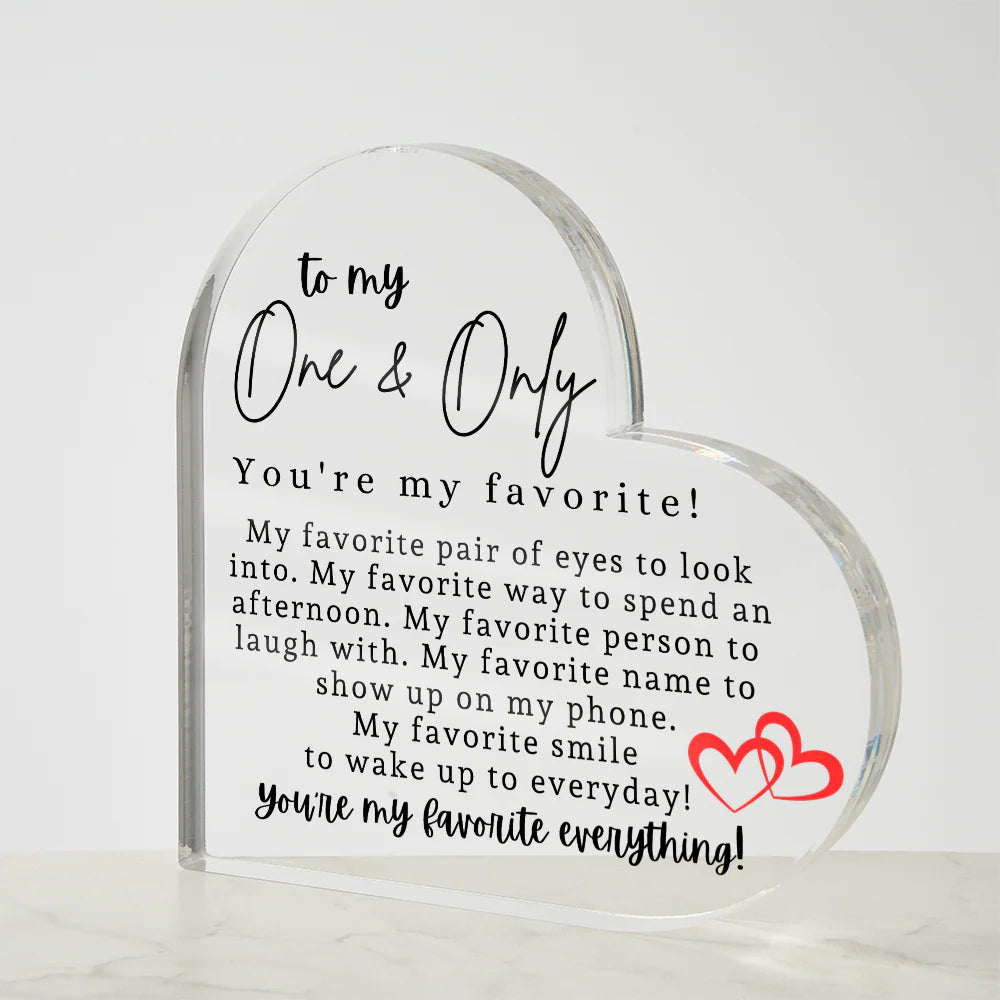 to my
One & Only
You're my favorite!
My favorite pair of eyes to look
into. My favorite way to spend an
afternoon. My favorite person to
laugh with. My favorite name to
show up on my phone.
My favorite smile
to wake up to everyday!
you're my favorite everything!